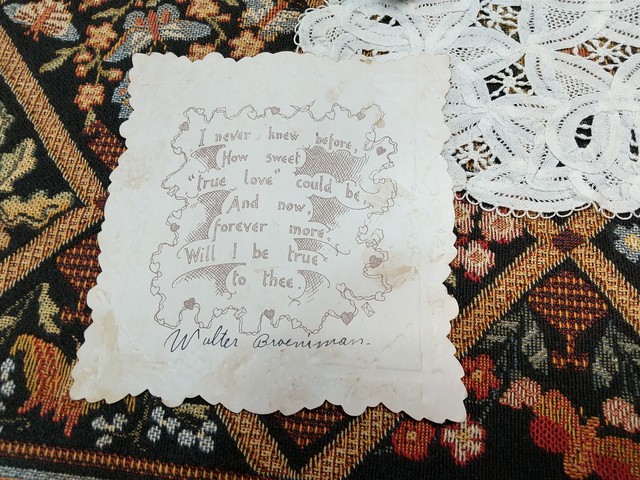 I never knew before,
How sweet
"true love" could be,
And now,
forever more,
Will I be true
to thee.
Walter